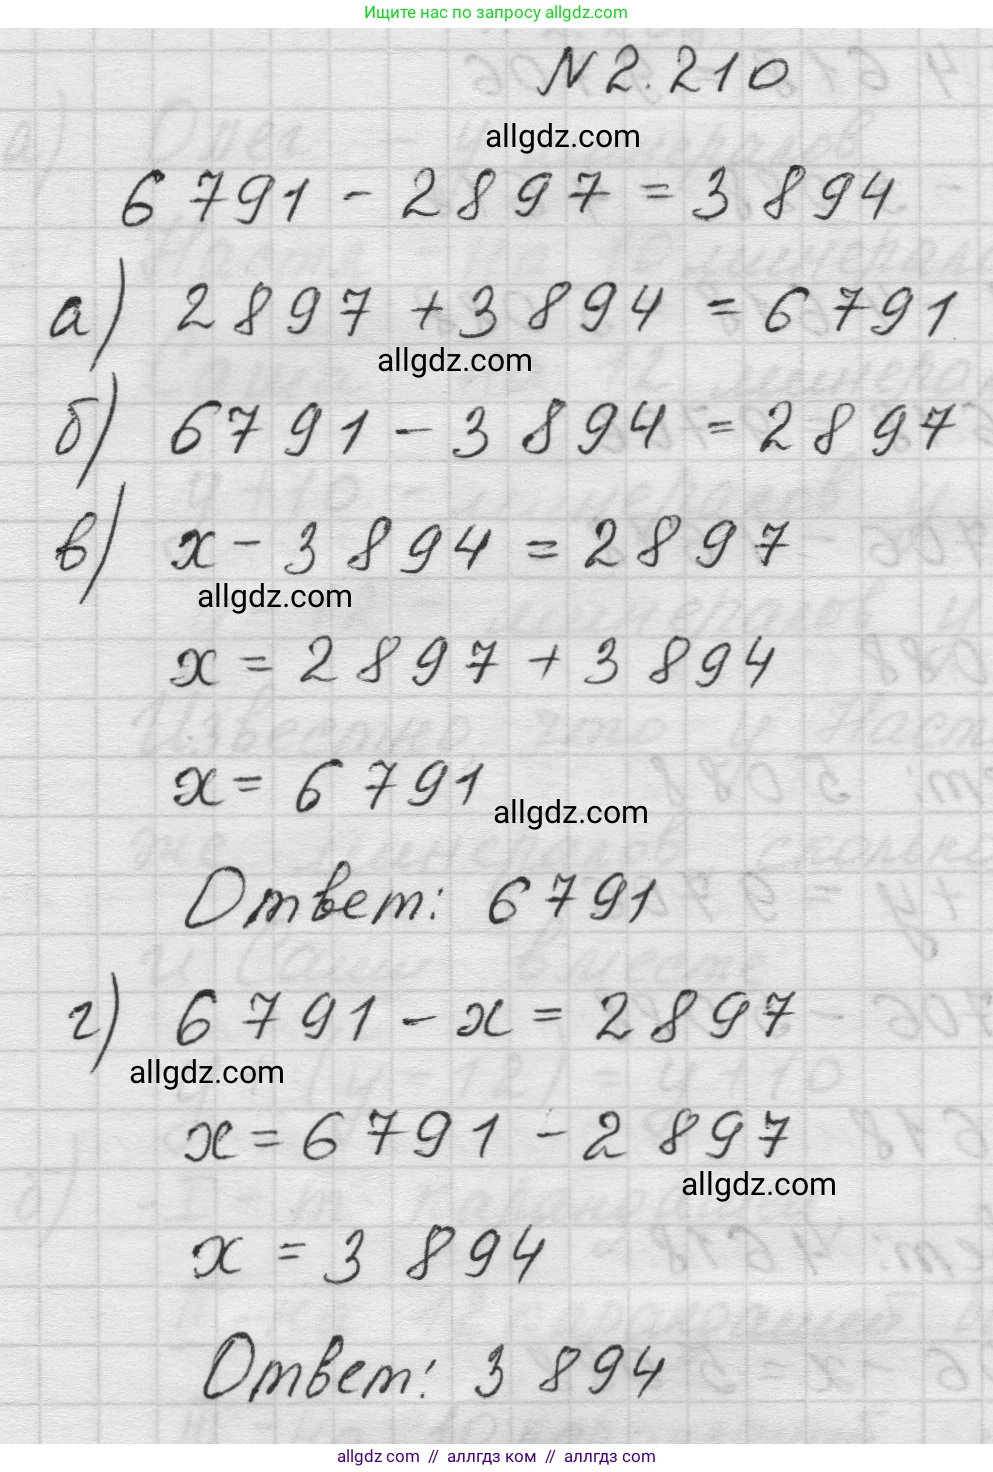 Ищите нас по запросу allgdz.com
N 2.210
allgdz.com
6791 - 2897 = 3894
а) 2897 + 3894 = 6791
allgdz.com
б) 6791 - 3894 = 2897
в) x - 3894 = 2897
allgdz.com
x = 2897 + 3894
x = 6791
allgdz.com
Ответ: 6791
г) 6791 - x = 2897
allgdz.com
x = 6791 - 2897
allgdz.com
x = 3894
Ответ: 3894
allgdz.com // аллгдз ком // allgdz.com